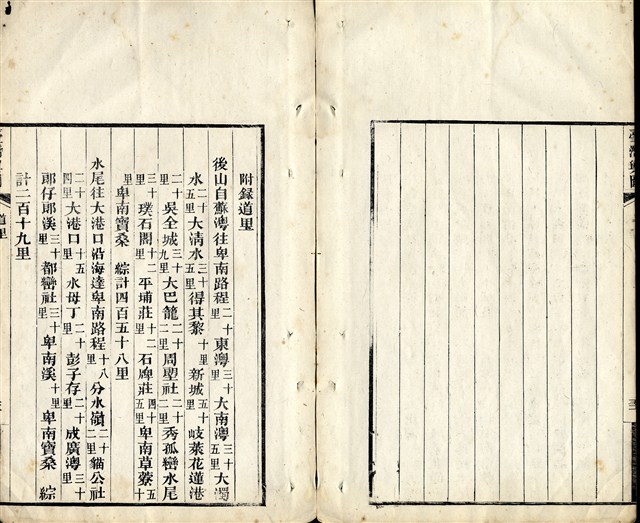 附錄道里
後山自蘇灣往卑南路程二十里東灣三十里大南灣三十五里大濁
水二十五里大清水三十五里得其黎十里新城五十里岐萊花蓮港
二十里吳全城三十九里大巴籠二十二里周塱社二十二里秀孤巒水尾
三十里璞石閣十二里平埔莊十二里石牌莊四十五里卑南草藔五十
里卑南寶桑 綜計四百五十八里
水尾往大港口沿海達卑南路程十八里分水嶺二十二里貓公社
二十四里大港口十五里水母丁二十里彭子存二十里成廣灣三十
里郎仔郎溪三十里都巒社三十里卑南溪十里卑南寶桑 綜
計二百十九里
道里